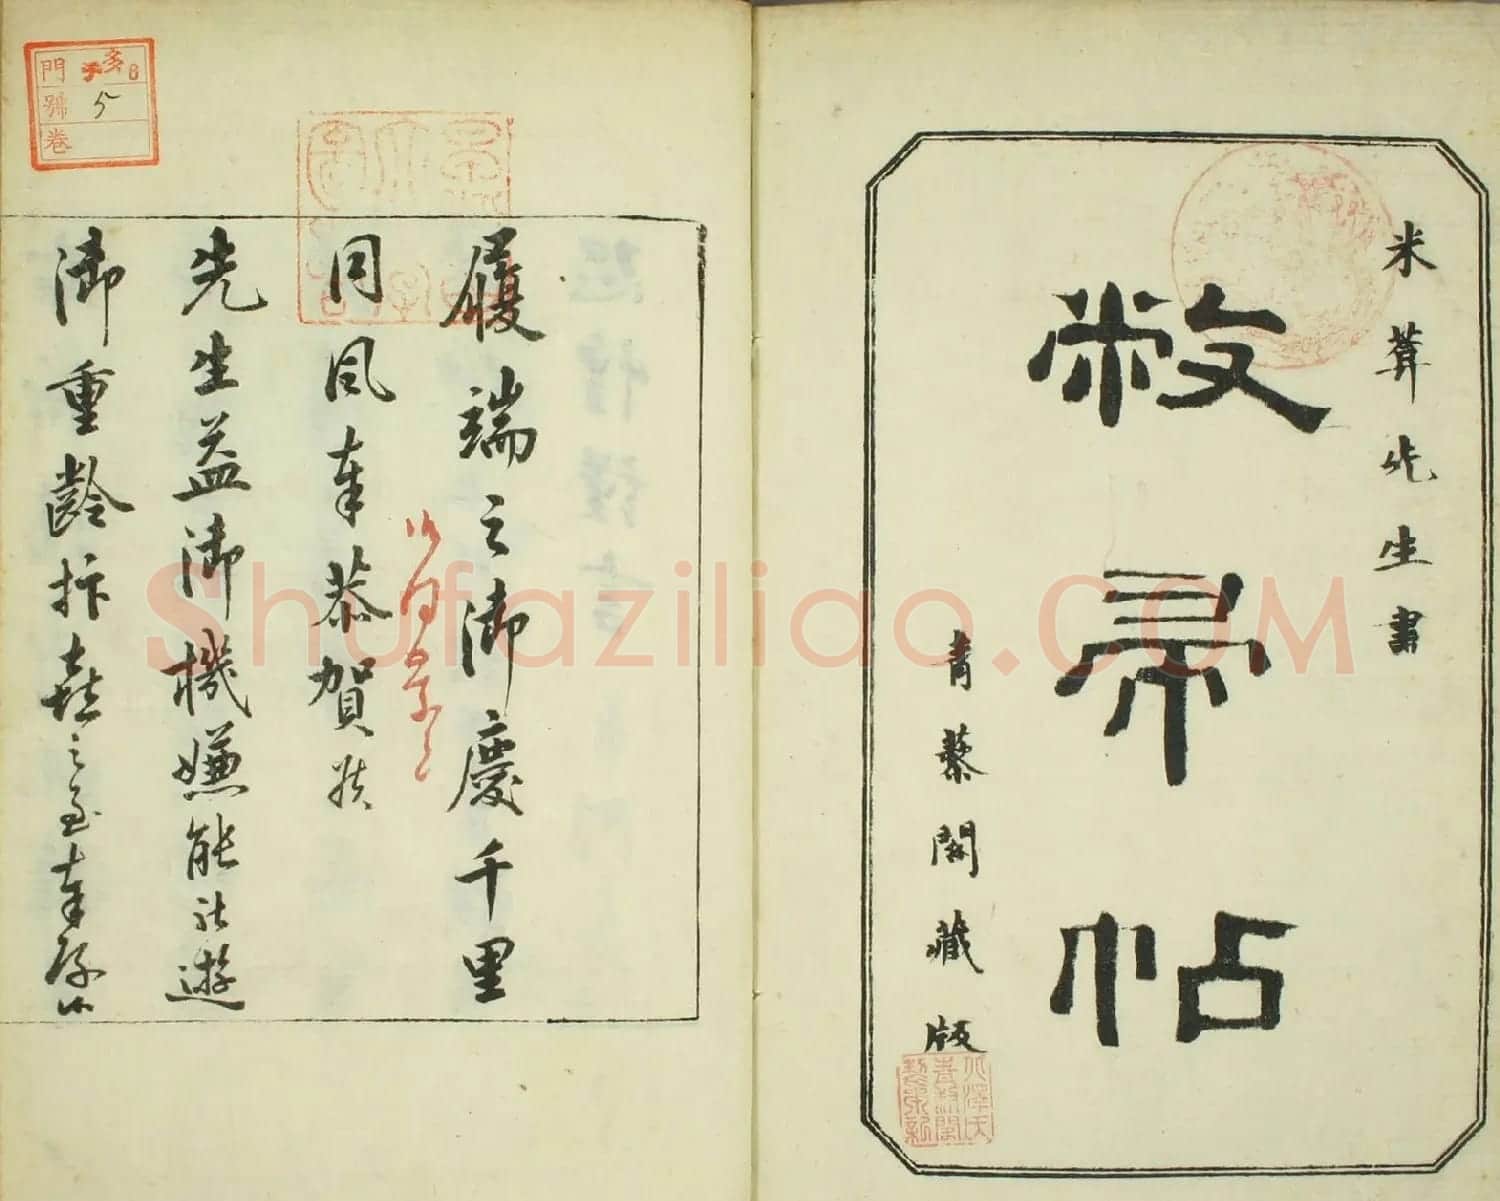 米葊先生書
敝帚帖
青藜閣藏版
履端之御慶千里
同風奉恭賀候
先生益御機嫌能被遊
御重齡抃喜之至奉存候
門
號 5
卷
Shufaziliao.COM